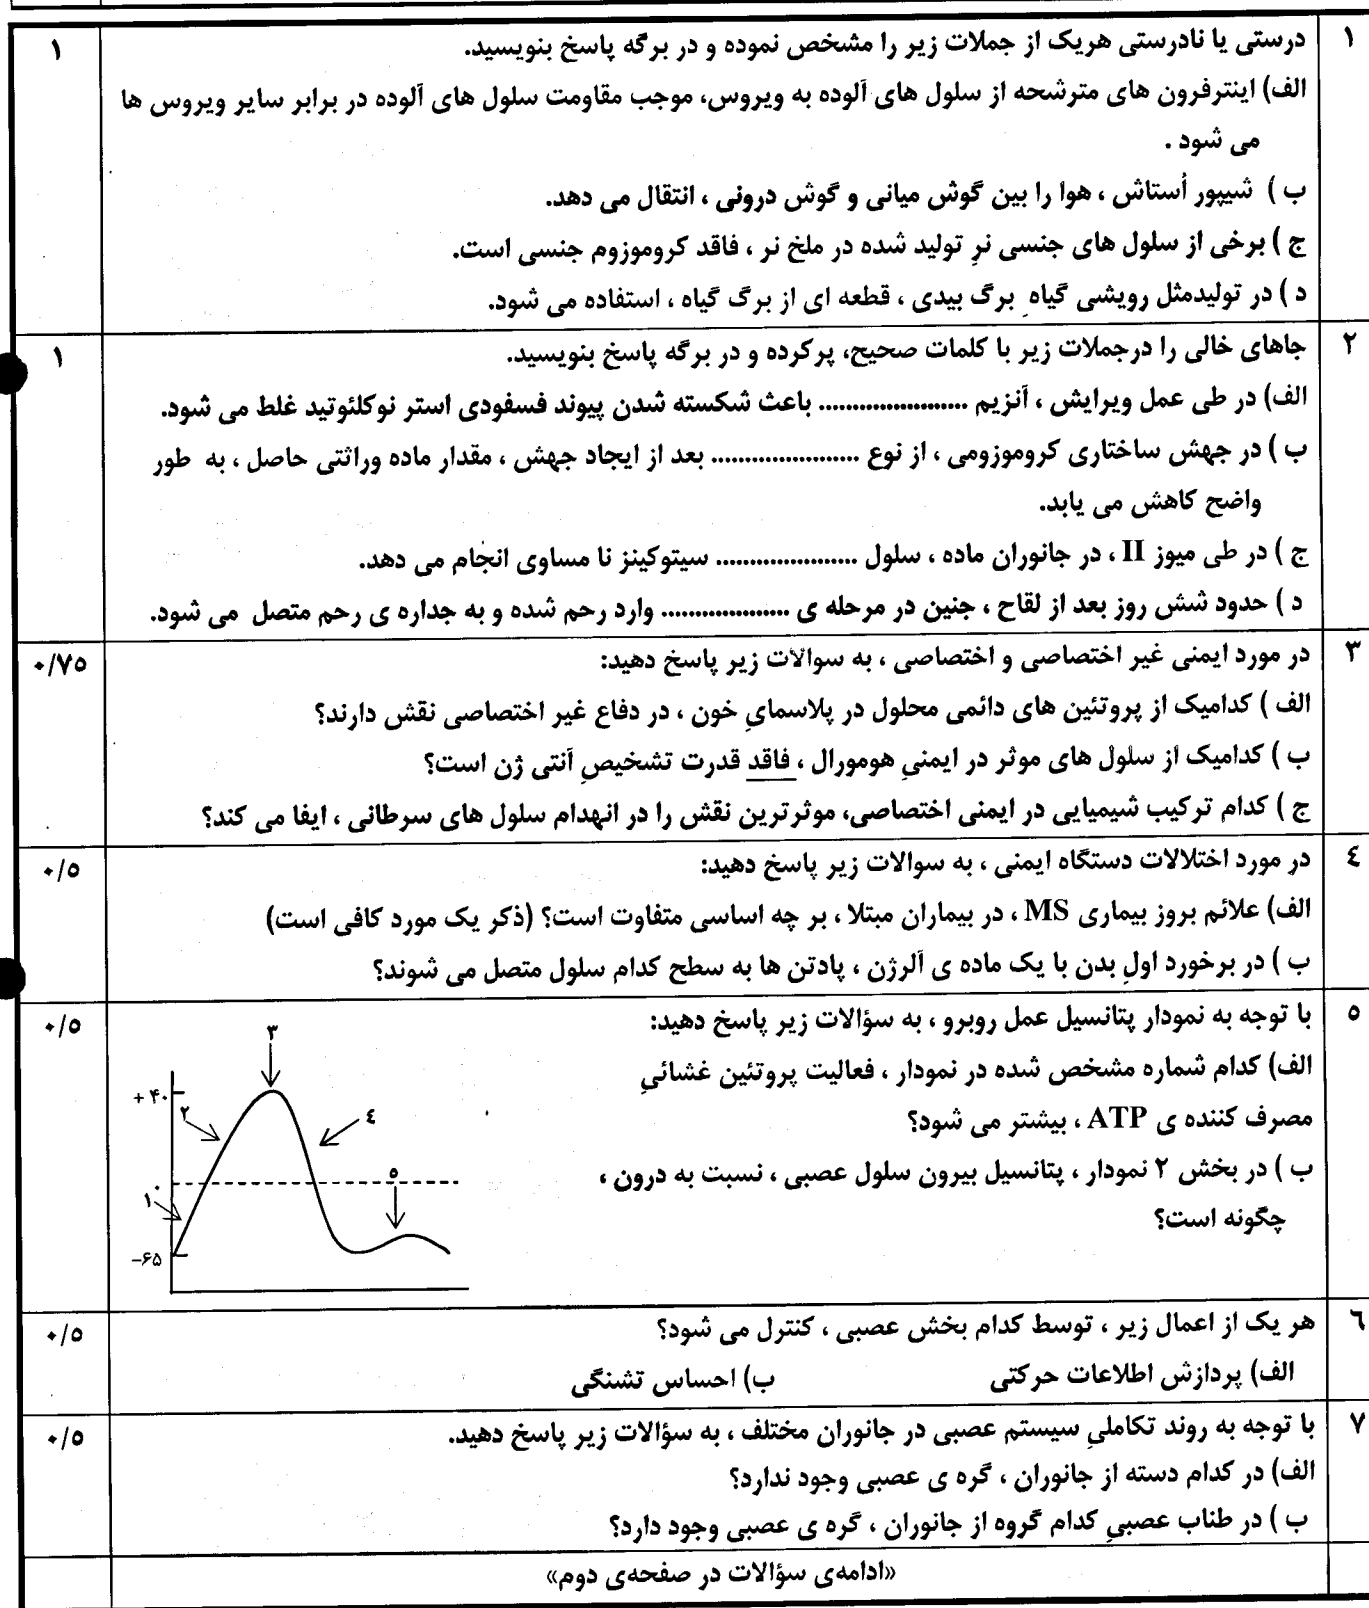 ۱ درستی یا نادرستی هریک از جملات زیر را مشخص نموده و در برگه پاسخ بنویسید. ۱
الف) اینترفرون های مترشحه از سلول های آلوده به ویروس، موجب مقاومت سلول های آلوده در برابر سایر ویروس ها
می شود .
ب ) شیپور اُستاش ، هوا را بین گوش میانی و گوش درونی ، انتقال می دهد.
ج ) برخی از سلول های جنسی نرِ تولید شده در ملخ نر ، فاقد کروموزوم جنسی است.
د ) در تولیدمثل رویشی گیاهِ برگ بیدی ، قطعه ای از برگ گیاه ، استفاده می شود.
۲ جاهای خالی را درجملات زیر با کلمات صحیح، پرکرده و در برگه پاسخ بنویسید. ۱
الف) در طی عمل ویرایش ، آنزیم ...................... باعث شکسته شدن پیوند فسفودی استر نوکلئوتید غلط می شود.
ب ) در جهش ساختاری کروموزومی ، از نوع ...................... بعد از ایجاد جهش ، مقدار ماده وراثتی حاصل ، به طور
واضح کاهش می یابد.
ج ) در طی میوز II ، در جانوران ماده ، سلول ..................... سیتوکینز نا مساوی انجام می دهد.
د ) حدود شش روز بعد از لقاح ، جنین در مرحله ی ................... وارد رحم شده و به جداره ی رحم متصل می شود.
۳ در مورد ایمنی غیر اختصاصی و اختصاصی ، به سوالات زیر پاسخ دهید: ۰/۷۵
الف ) کدامیک از پروتئین های دائمی محلول در پلاسمایِ خون ، در دفاع غیر اختصاصی نقش دارند؟
ب ) کدامیک از سلول های موثر در ایمنیِ هومورال ، فاقد قدرت تشخیصِ آنتی ژن است؟
ج ) کدام ترکیب شیمیایی در ایمنی اختصاصی، موثرترین نقش را در انهدام سلول های سرطانی ، ایفا می کند؟
٤ در مورد اختلالات دستگاه ایمنی ، به سوالات زیر پاسخ دهید: ۰/۵
الف) علائم بروز بیماری MS ، در بیماران مبتلا ، بر چه اساسی متفاوت است؟ (ذکر یک مورد کافی است)
ب ) در برخورد اولِ بدن با یک ماده ی آلرژن ، پادتن ها به سطح کدام سلول متصل می شوند؟
۵ با توجه به نمودار پتانسیل عمل روبرو ، به سؤالات زیر پاسخ دهید: ۰/۵
الف) کدام شماره مشخص شده در نمودار ، فعالیت پروتئین غشائیِ
مصرف کننده ی ATP ، بیشتر می شود؟
ب ) در بخش ۲ نمودار ، پتانسیل بیرون سلول عصبی ، نسبت به درون ،
چگونه است؟
۳
+۴۰
۲
٤
۰
۵
۱
-۶۵
٦ هر یک از اعمال زیر ، توسط کدام بخش عصبی ، کنترل می شود؟ ۰/۵
الف) پردازش اطلاعات حرکتی ب) احساس تشنگی
۷ با توجه به روند تکاملیِ سیستم عصبی در جانوران مختلف ، به سؤالات زیر پاسخ دهید. ۰/۵
الف) در کدام دسته از جانوران ، گره ی عصبی وجود ندارد؟
ب ) در طناب عصبیِ کدام گروه از جانوران ، گره ی عصبی وجود دارد؟
«ادامه‌ی سؤالات در صفحه‌ی دوم»